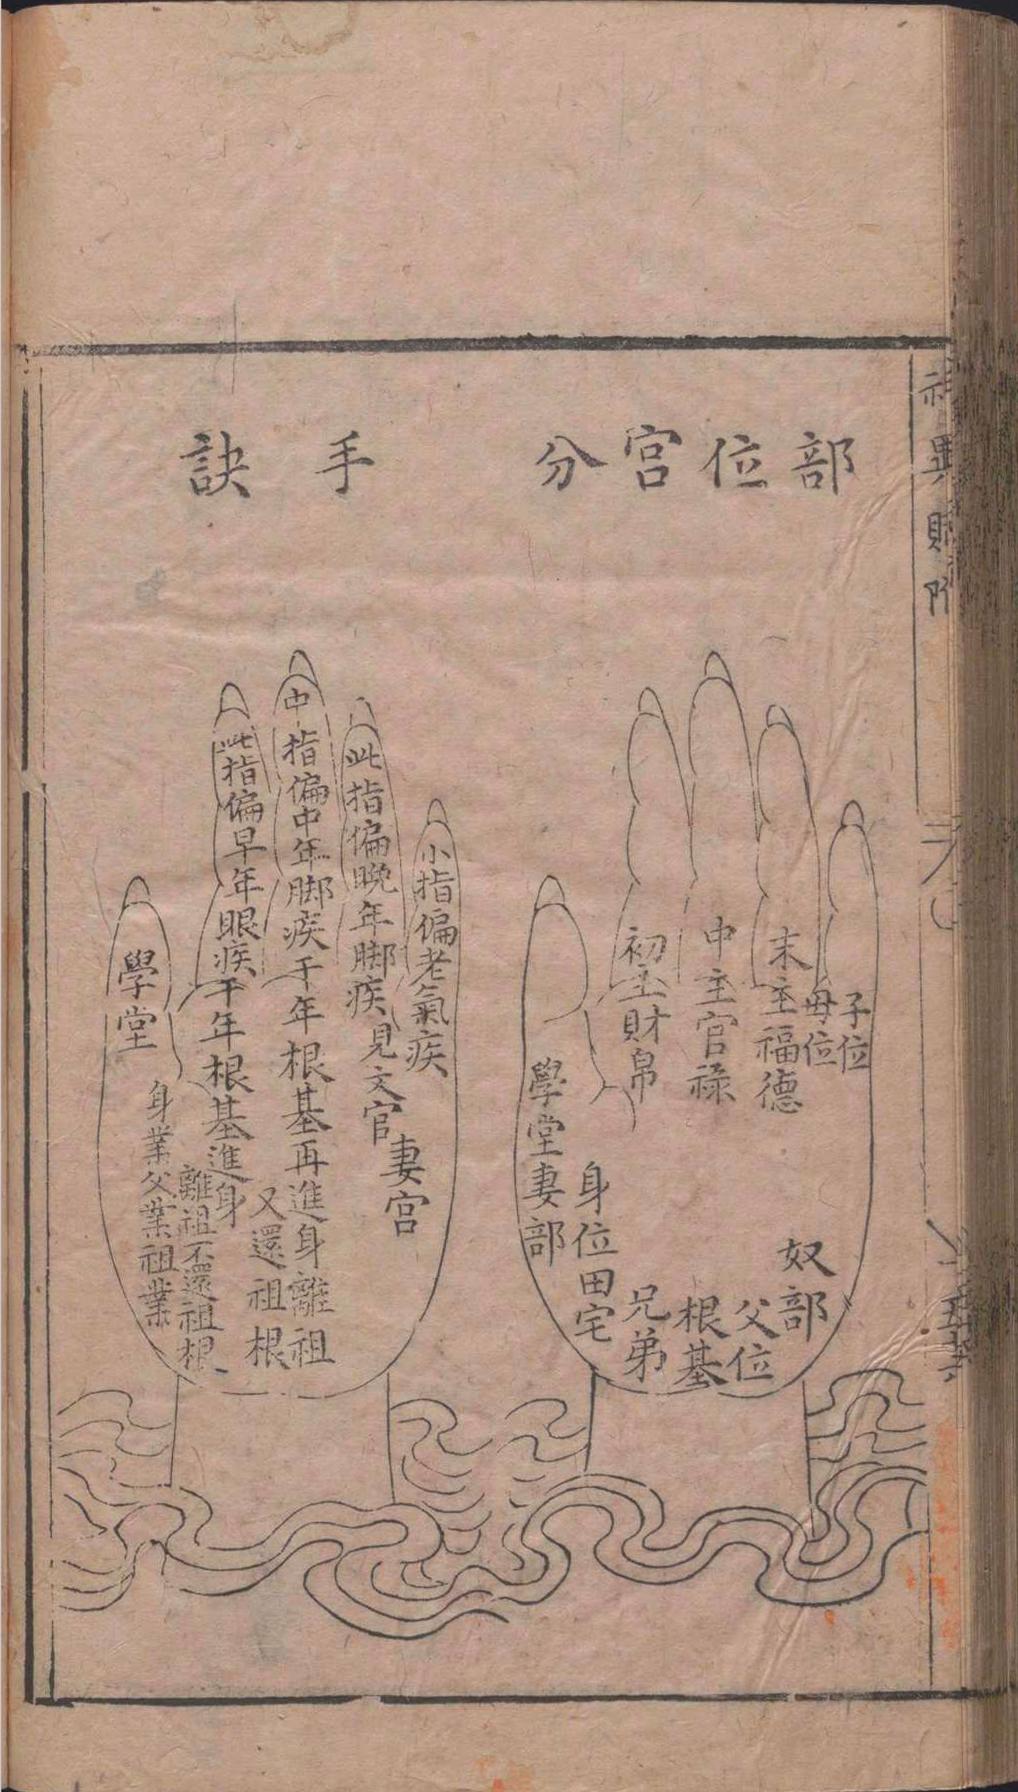 部位宮分
手訣
子位
母位
末主福德
中主官祿
初主財帛
學堂妻部
身位田宅
兄弟
根基
父位
奴部
小指偏老氣疾
此指偏晩年脚疾見文官
妻宮
中指偏中年脚疾于年根基再進身離祖
又還祖根
此指偏早年眼疾于年根基進身
離祖不還祖根
學堂
身業父業祖業